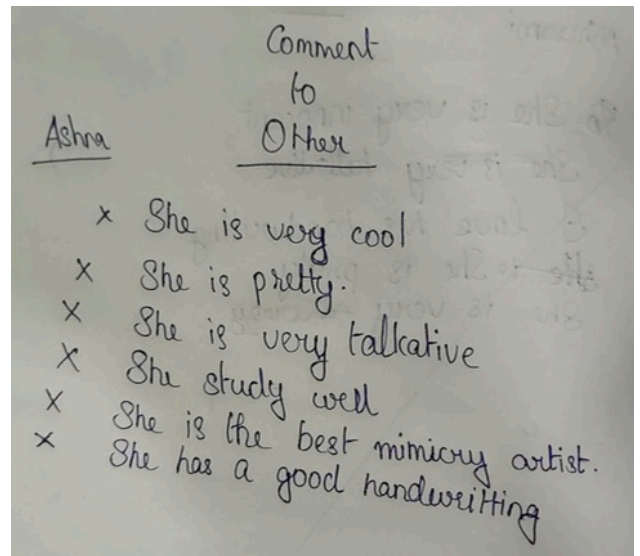 Comment
to
Other
Ashna
x She is very cool
x She is pretty.
x She is very talkative
x She study well
x She is the best mimicry artist.
x She has a good handwritting